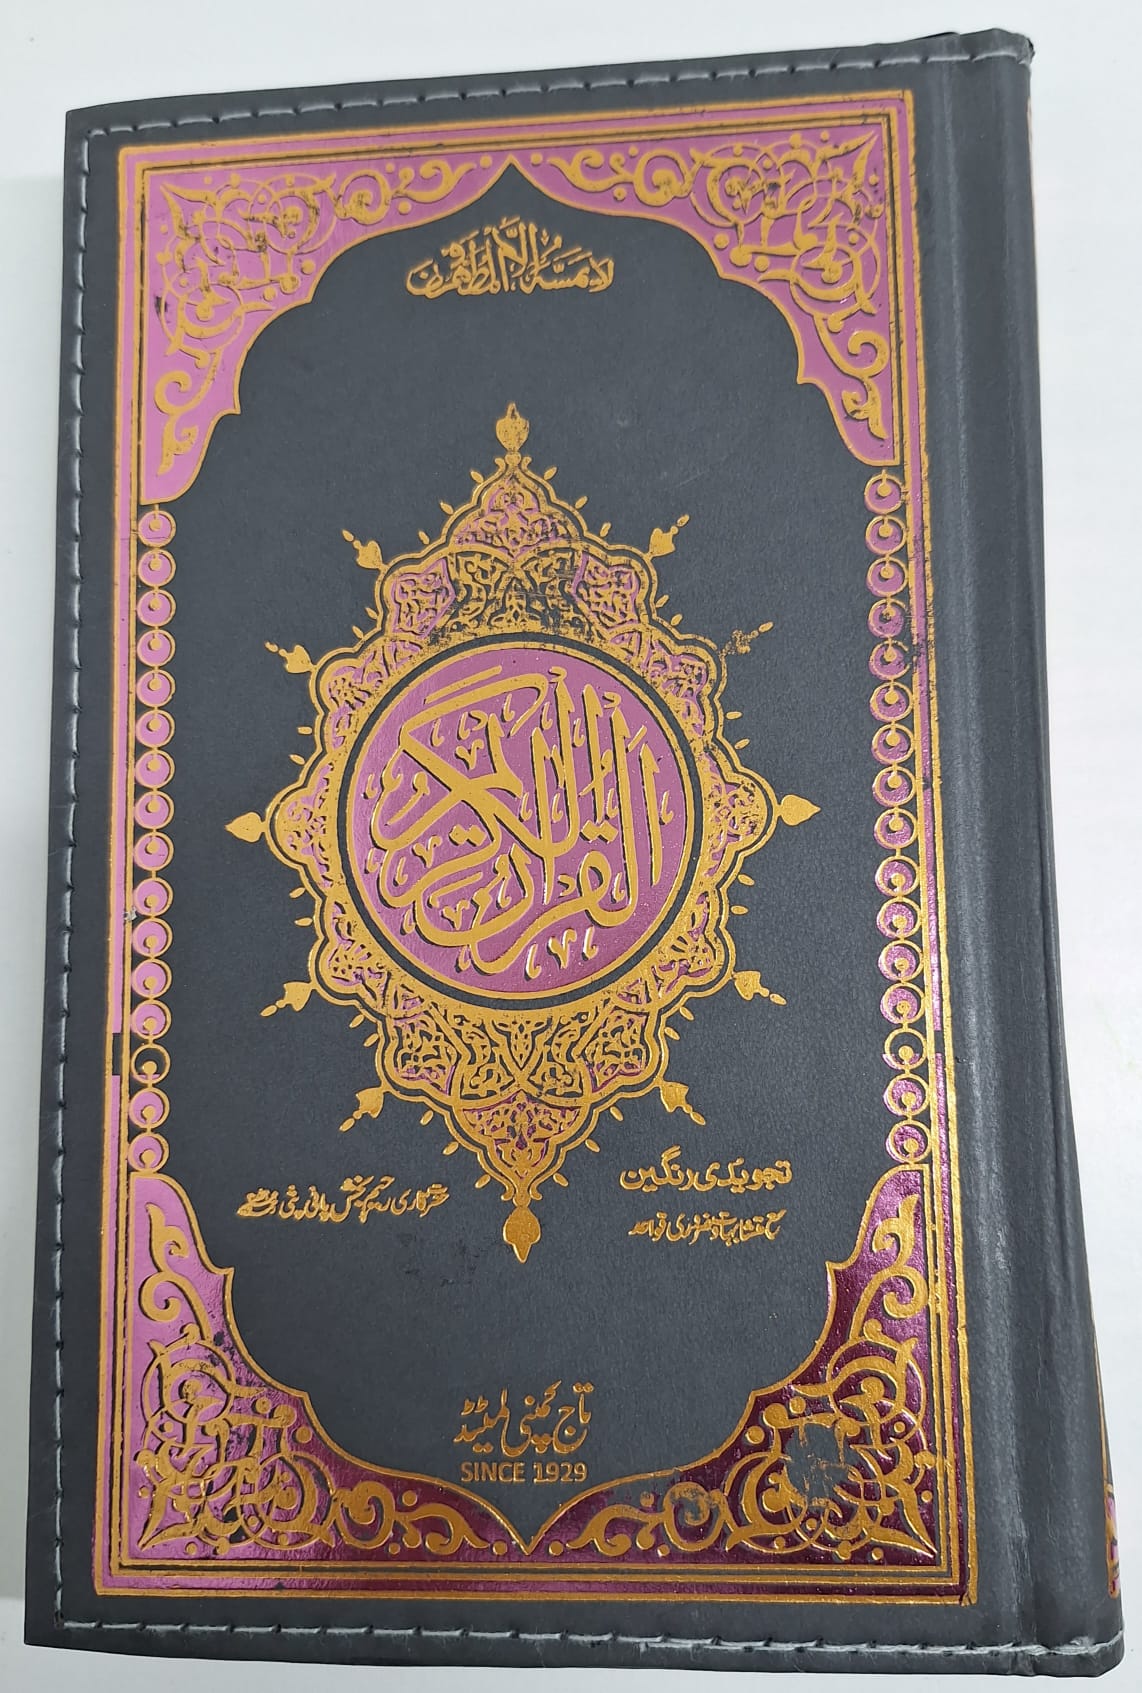 لا يمسه الا المطهرون
القرآن الكريم
تجویدی رنگین
مع متشابہات و ضروری قواعد
حضرت قاری رحیم بخش پانی پتی
تاج کمپنی لمیٹڈ
SINCE 1929